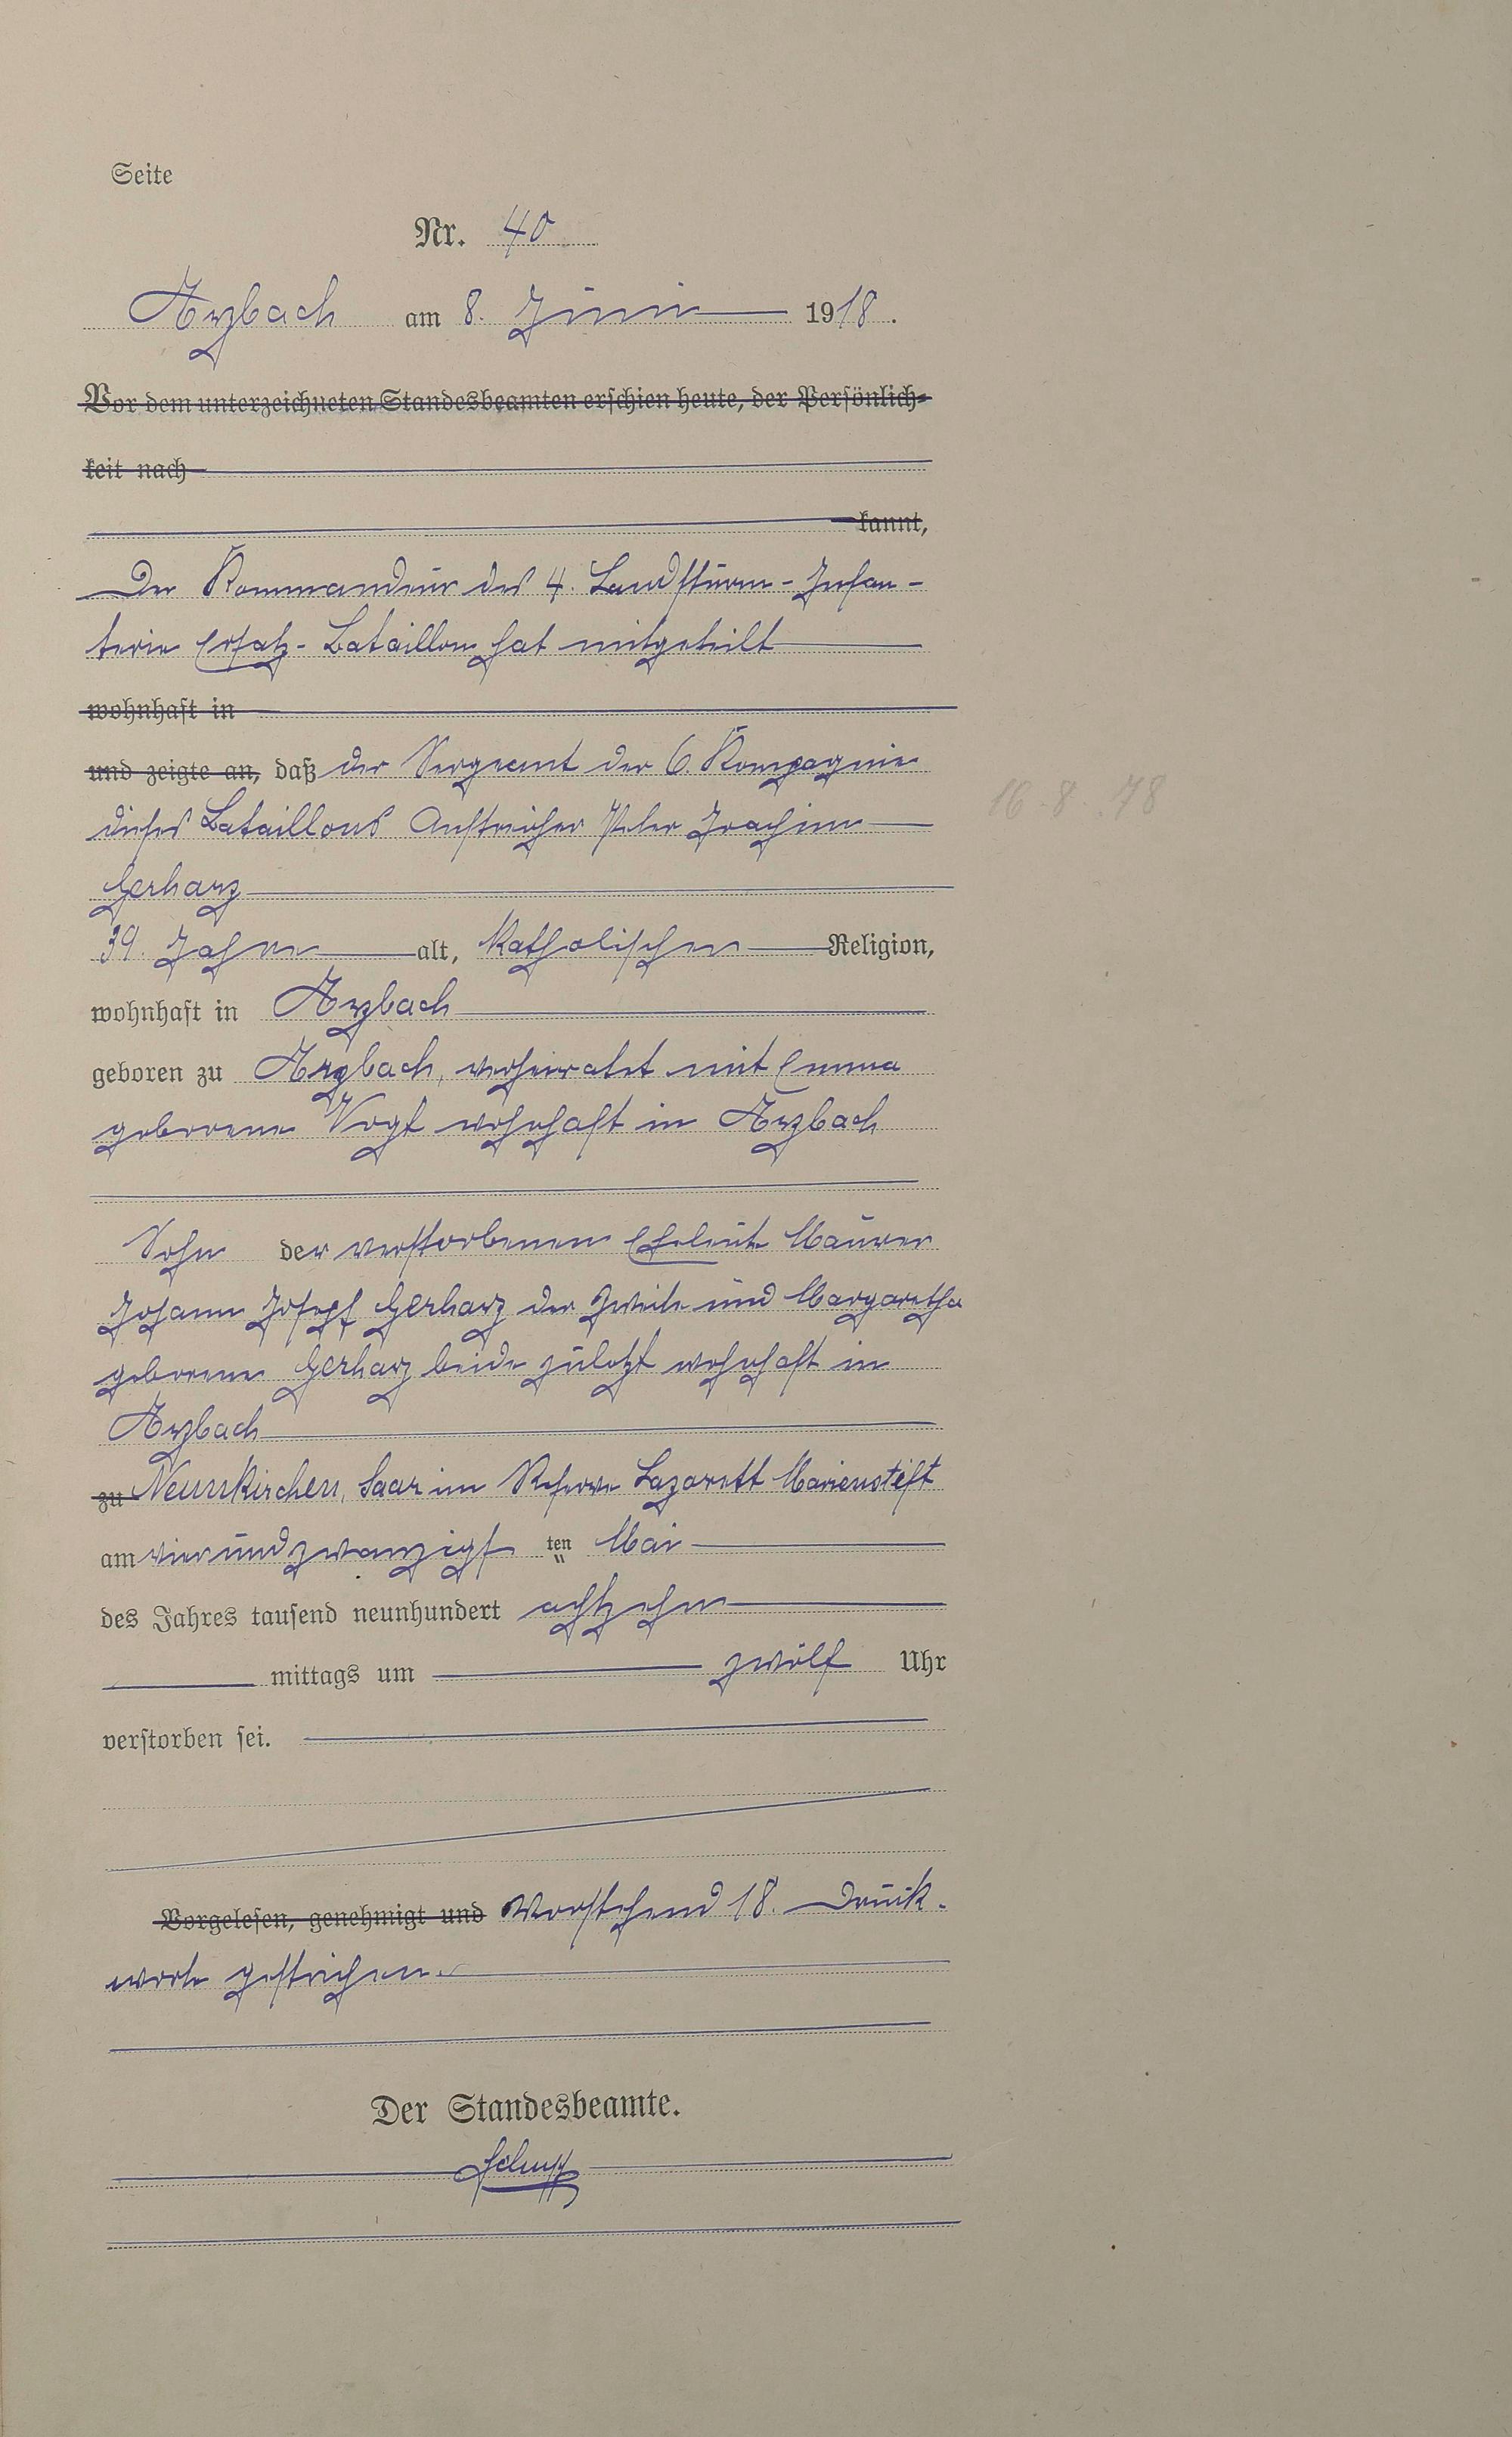 Seite
Nr. 40
Arzbach am 8. Juni 1918.
Vor dem unterzeichneten Standesbeamten erschien heute, der Persönlich-
keit nach
kannt,
Der Kommandeur des 4. Landsturm-Infan-
terie Ersatz-Bataillon hat mitgeteilt
wohnhaft in
und zeigte an, daß der Sergeant der 6. Kompagnie
dieses Bataillons Anstreicher Peter Joachim
16.8.78
Gerharz
39. Jahre alt, katholischer Religion,
wohnhaft in Arzbach
geboren zu Arzbach, verheiratet mit Emma
geborene Vogt wohnhaft in Arzbach
Sohn der verstorbenen Eheleute Maurer
Johann Josepf Gerharz der Zweite und Margaretha
geborene Gerharz beide zuletzt wohnhaft in
Arzbach
zu Neunkirchen, Saar im Reserve Lazarett Marienstift
am vierundzwanzigsten Mai
des Jahres tausend neunhundert achtzehn
mittags um zwölf Uhr
verstorben sei.
Vorgelesen, genehmigt und Vorstehend 18. Druck-
worte gestrichen.
Der Standesbeamte.
Schupp